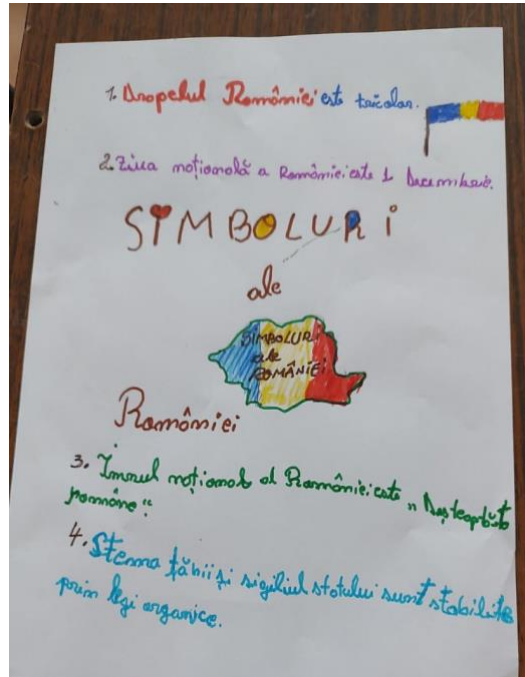 1. Drapelul României este tricolor.
2. Ziua națională a României este 1 Decembrie.
SIMBOLURI
ale
SIMBOLURI
ale
ROMÂNIEI
României
3. Imnul național al României este „Deșteaptă-te
române“.
4. Stema țării și sigiliul statului sunt stabilite
prin legi organice.